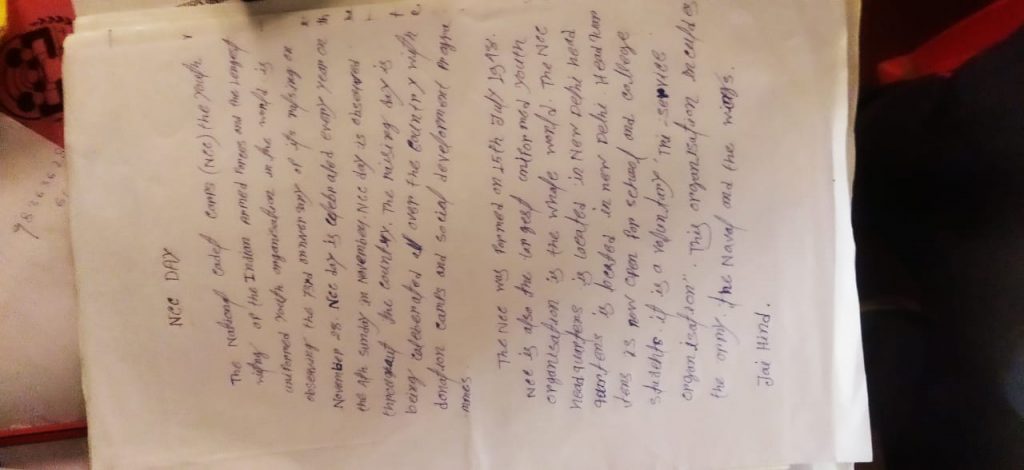 NCC DAY
The National cadet camps (NCC) the youth
wing of the Indian Armed forces and the longest
uniformed youth organisation in the world is
observing the 73rd anniversary of it raising on
November 28. NCC day is celebrated every year on
the 4th sunday in november. NCC day is observed
throughout the country. The raising day is
being celebrated all over the country with
donation camps and social development progra
mmes.
The NCC was formed on 15th July 1948.
NCC is also the largest uniformed youth
organisation is the whole world. The NCC
headquarters is located in New Delhi head
quarters is located in new Delhi. Headquar
ters is now open for school and college
students. it is a voluntary "Tri-service
organisation". This organisation includes
the army, the Naval and the wings.
Jai Hind.